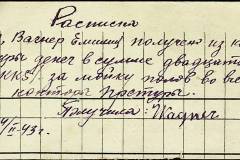 Расписка
, Вагнер Емилиц получено из к
ры денег в сумме двадцат
ККS/. за мойку полов во вс
контора Костуры.
Получила: Wagner
/II-43г.